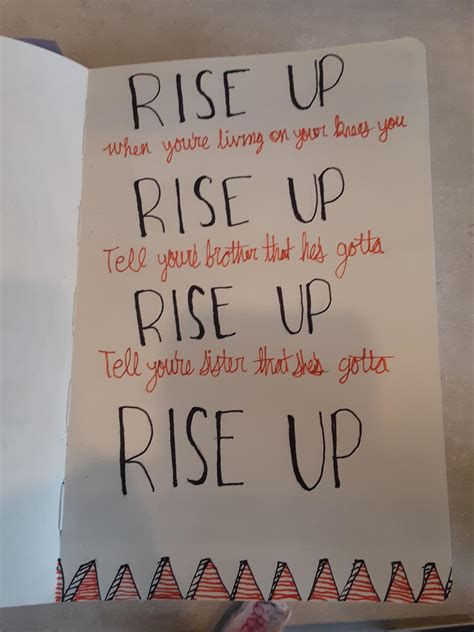 RISE UP
when you're living on your knees you
RISE UP
Tell your's brother that he's gotta
RISE UP
Tell you're sister that she's gotta
RISE UP